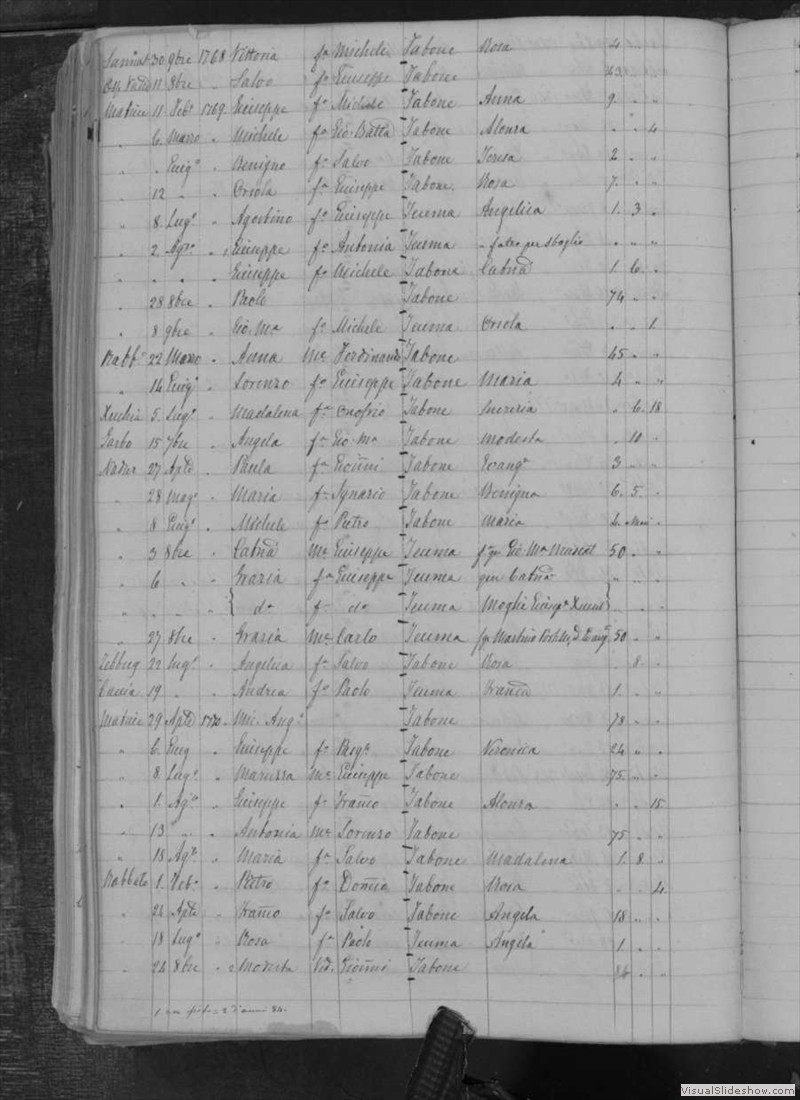 Sannat 30 9bre 1768 Vittoria fa Michele Tabone Rosa 4 " "
11 8bre " Salvo fo Giuseppe Tabone 43 " "
Matrice 11 Feb. 1769 Giuseppe fo Michele Tabone Anna 9 " "
" 6 Marzo " Michele fo Gio Batta Tabone Alonza " " 4
" " Giugo " Benigno fo Salvo Tabone Teresa 2 " "
" 12 " " Orsola fa Giuseppe Tabone Rosa 7 " "
" 8 Lugo " Agostino fo Giuseppe Teuma Angelica 1 3 "
" 2 Agto " Giuseppe fo Antonia Teuma - fatto per sbaglio " " "
" " " " Giuseppe fo Michele Tabone Catna 1 6 "
" 28 8bre " Paolo Tabone 74 " "
" 8 9bre " Gio Ma fo Michele Teuma Orsola " " 1
Rabbo 22 Marzo " Anna Me Ferdinando Tabone 45 " "
" 14 Giugo " Lorenzo fo Giuseppe Tabone Maria 4 " "
Xeuchia 5 Lugo " Madalena fa Onofrio Tabone " 6 18
Garbo 15 7bre " Angela fa Gio Ma Tabone Modesta " 10 "
Nadur 27 Aple " Paula fa Gionni Tabone Evanga 3 " "
" 28 Mago " Maria fa Ignazio Tabone Benigna 6 5 "
" 8 Giugo " Michele fo Pietro Tabone Maria " "
" 3 8bre " Catna Me Giuseppe Teuma Gio Ma Muscat 50 " "
" 6 " " Grazia fa Giuseppe Teuma Catna " " "
" " " " { da f da Teuma Moglie } " " "
" 27 8bre " Grazia Me Carlo Teuma Martino 50 " "
Zebbug 22 Lugo " Angelica fa Salvo Tabone Rosa " 8 "
Caccia 19 " " Andrea fo Paolo Teuma Franca 1 " "
Matrice 29 Aple 1770 Mic. Ango Tabone 78 " "
" 6 Giug " Giuseppe fo Pasqe Tabone Veronica 24 " "
" 8 Lugo " Maruzza Me Giuseppe Tabone 75 " "
" 1 Agto " Giuseppe fo Franco Tabone Alonza " " 15
" 13 " " Antonia Me Lorenzo Tabone 75 " "
" 18 Agto " Maria fa Salvo Tabone Madalena 1 8 "
Rabbato 1 Feb. " Pietro fo Domco Tabone Rosa " " 4
" 24 Aple " Franco fo Salvo Tabone Angela 18 " "
" 18 Lugo " Rosa fa Paolo Teuma Angela 1 " "
" 24 8bre " Modesta Vid. Gionni Tabone " "
VisualSlideshow.com